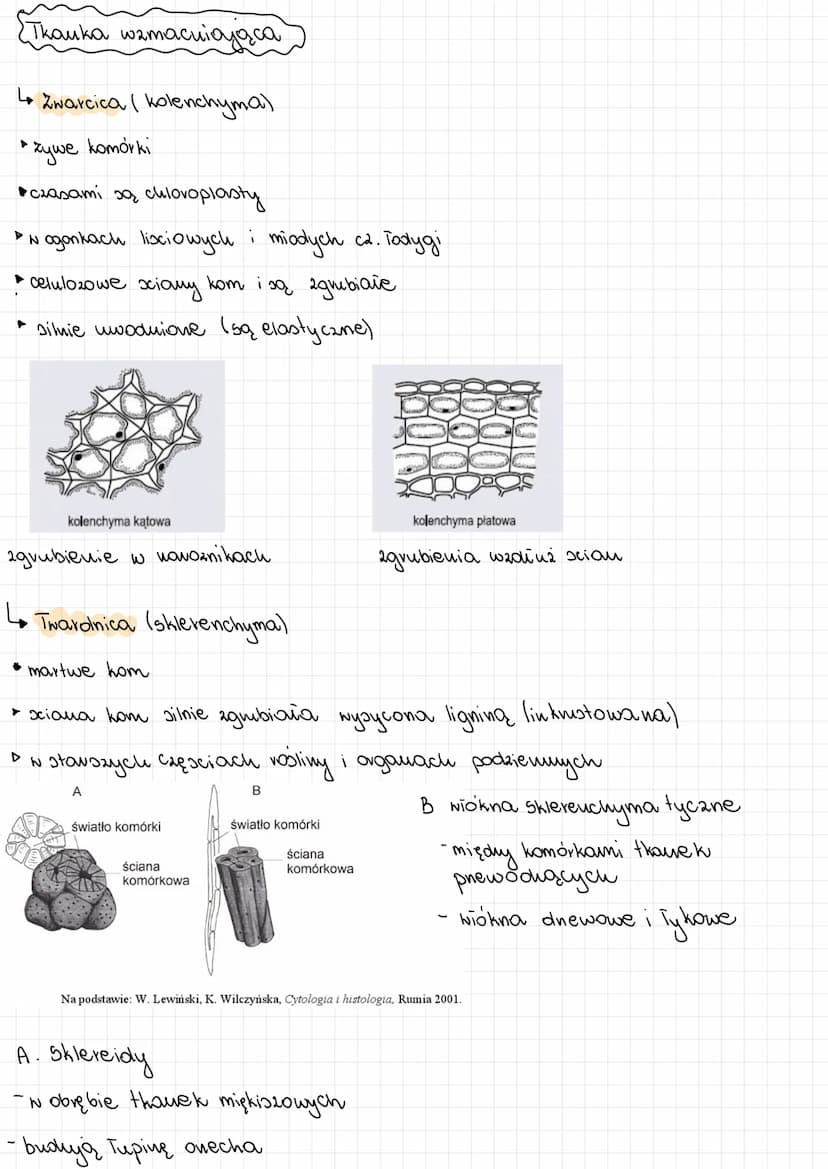 Tkanka wzmacniająca
↳ Zwarcica (kolenchyma)
▸ żywe komórki
▸ czasami są chloroplasty
▸ w ogonkach liściowych i młodych cz. łodygi
▸ celulozowe ściany kom i są zgrubiałe
▸ silnie uwodnione (są elastyczne)
kolenchyma kątowa
kolenchyma płatowa
zgrubienie w narożnikach
zgrubienia wzdłuż ścian
↳ Twardnica (sklerenchyma)
• martwe kom
▸ ściana kom silnie zgrubiała wysycona ligniną (inkrustowana)
▸ w starszych częściach rośliny i organach podziemnych
A
B
światło komórki
ściana
komórkowa
światło komórki
ściana
komórkowa
B włókna sklerenchymatyczne
- między komórkami tkanek
przewodzących
- włókna drzewowe i łykowe
Na podstawie: W. Lewiński, K. Wilczyńska, Cytologia i histologia, Rumia 2001.
A. Sklereidy
- w obrębie tkanek miękiszowych
- budują łupinę orzecha